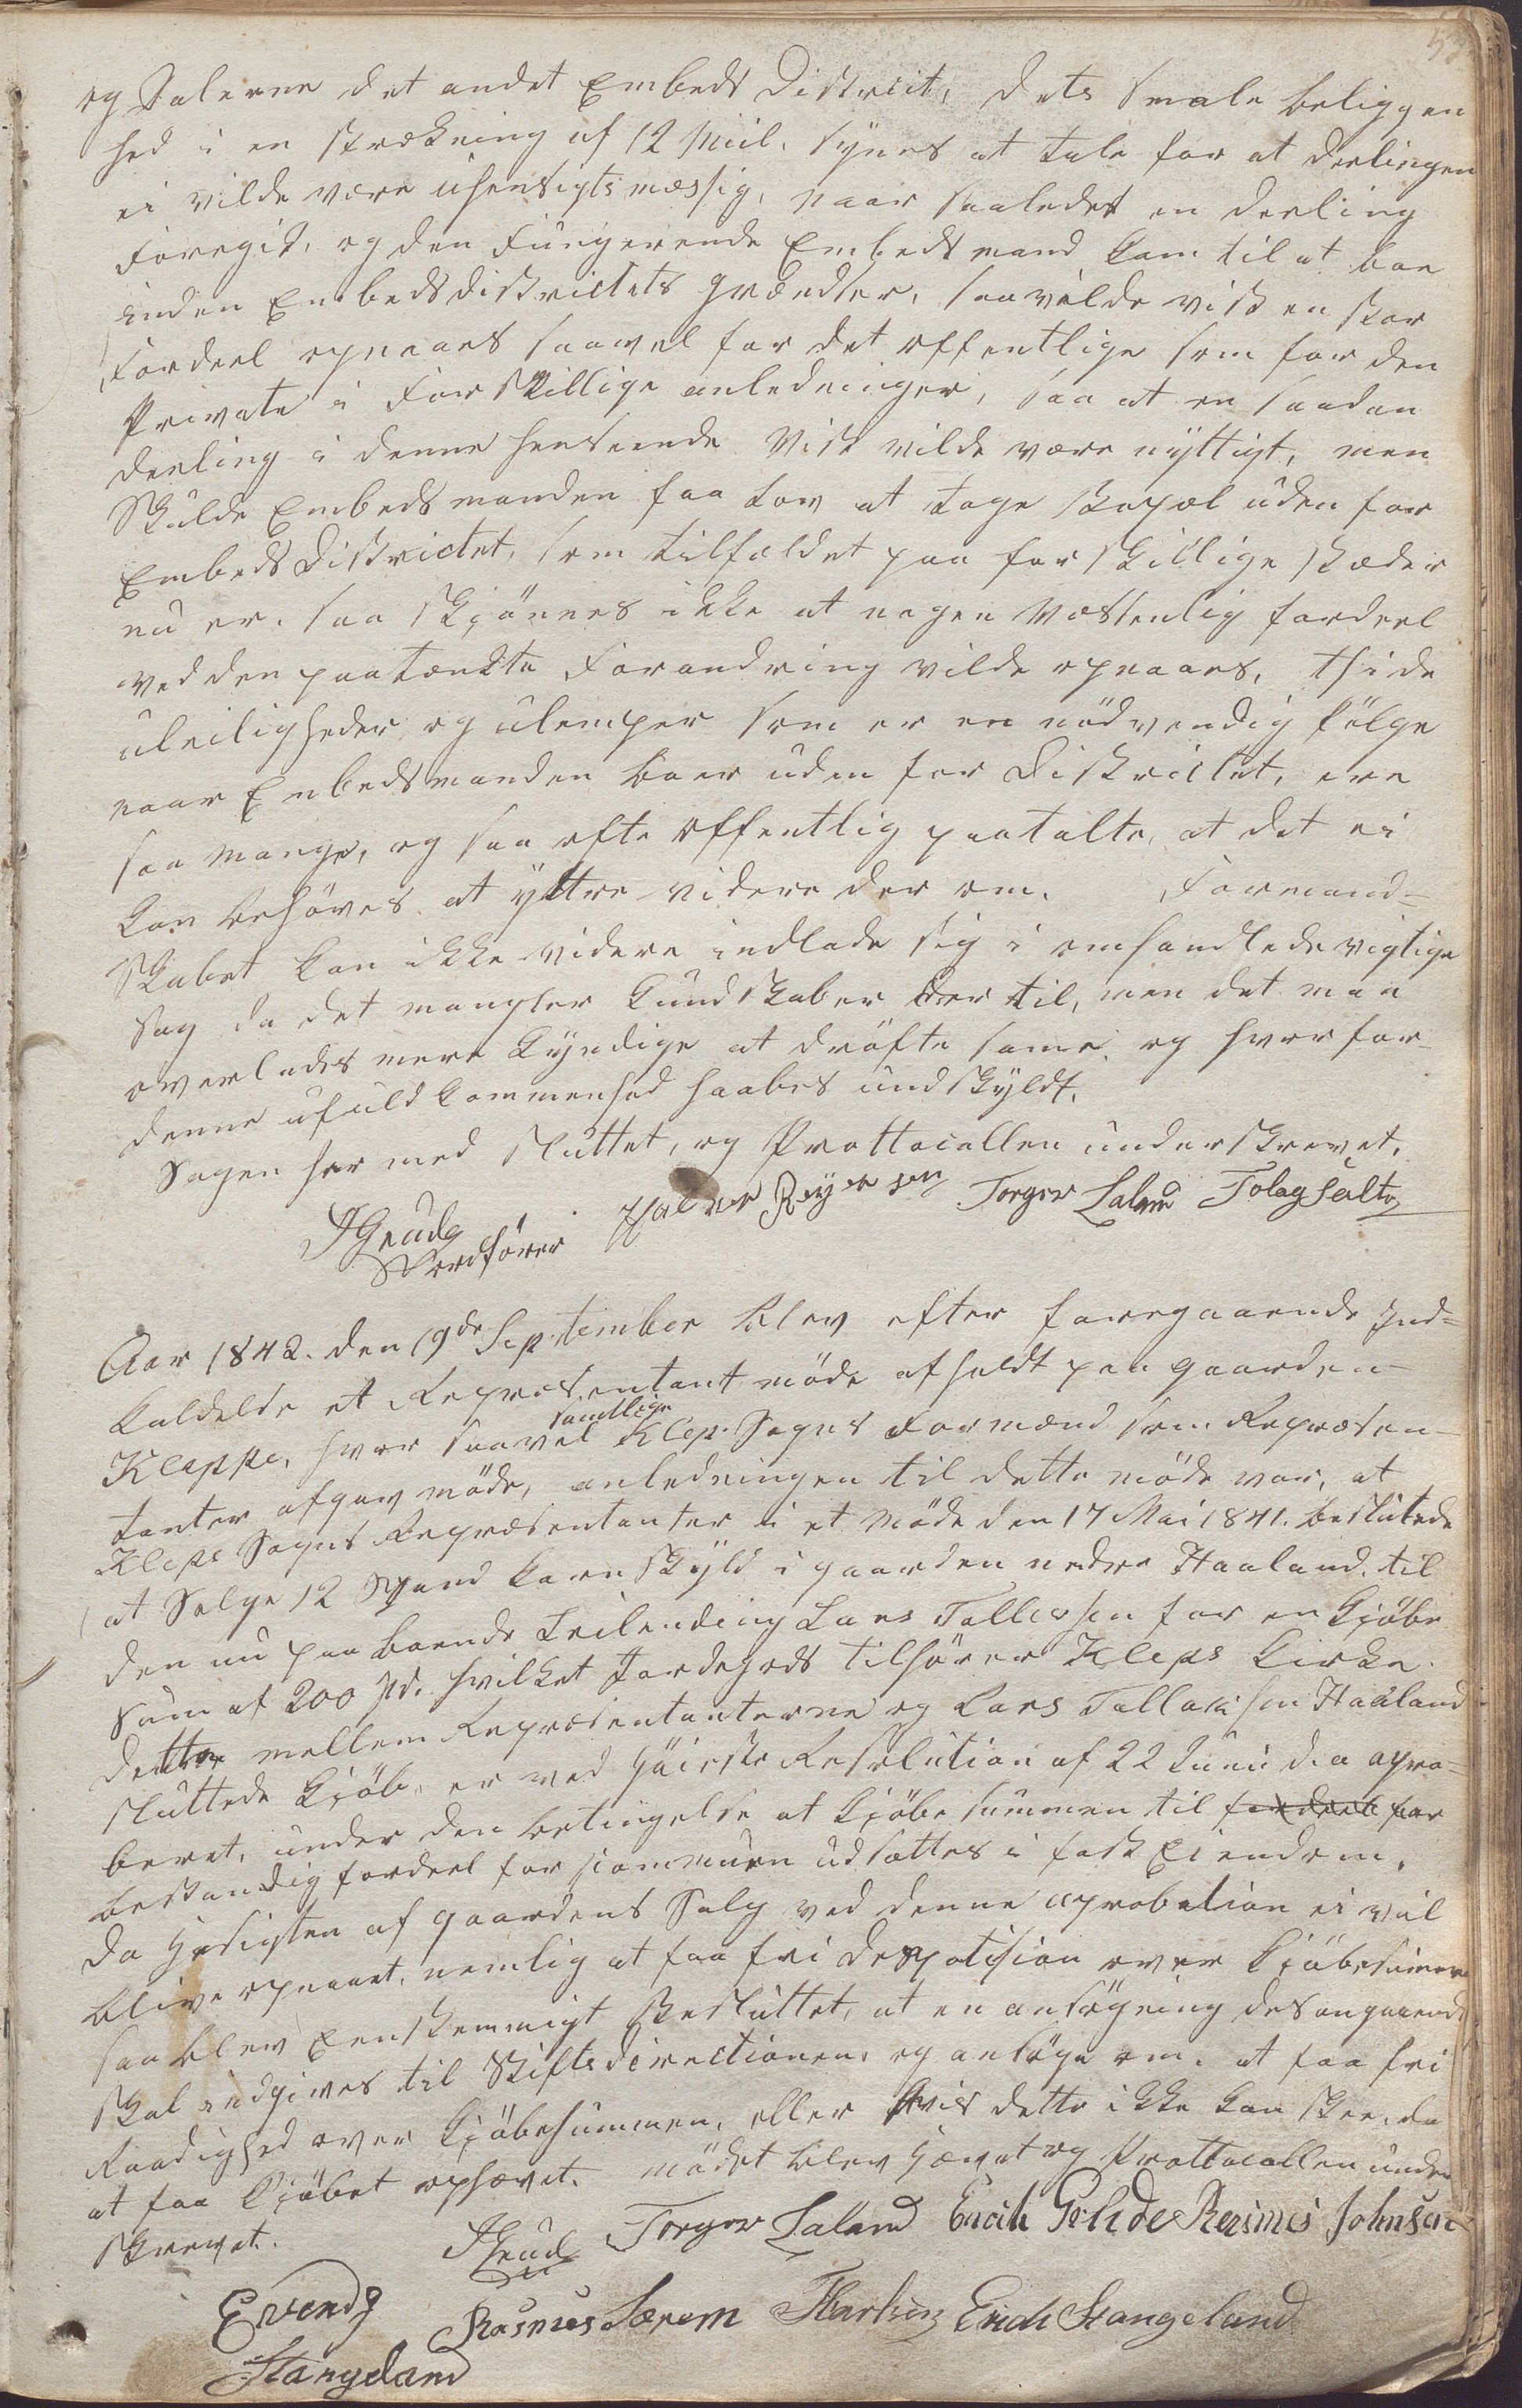 og Dalerne det andet Embeds District, dets Smale beliggen
hed i en strækning af 12 Miil. synes at tale for at deelingen
ei vilde være uhensigtsmæssig, naar saaledes en deeling
foregik, og den fungerende Embedsmand kom til at boe
inden Embedsdistrictets Grændser, saa vilde vist en stor
fordeel opnaaes saavel for det offentlige som for den
Private i forskillige anledninger, saa at en saadan
deeling i denne henseende vist vilde være nyttigt, men
Skulde Embedsmanden faa Lov at tage bopæl uden for
Embeds Districtet, som tilfældet paa forskillige stæder
nu er. saa skjönnes ikke at nogen væssentlig fordeel
ved den paatænkte forandring vilde opnaaes, thi de
uleiligheder og ulemper som er en nödvendig fölge
naar Embedsmanden boer uden for Districtet, ere
saa mange, og saa ofte offentlig paatalte, at det ei
kan behöves at yttre videre der om. Formand-
Skabet kan ikke videre indlade sig i omhandlede vigtige
sag da det mangler Kundskaber der til, men det maa
overlades mere Kyndige at dröfte same, og hvorfor
denne ufuldkommenhed haabes undskyldt.
Sagen her med sluttet, og Prottocollen underskrevet.
Halvor Reyersen Torger Laland Tolag Salte
Ordförer
Aar 1842. den 19de September blev efter foregaaende Ind=
kaldelse et Representantmöde afholdt paa gaarden
samtlige
Kleppe, hvor saavel Klep Sogns Formænd som Repræsen-
tanter afgav möde, anledningen til dette möde var, at
Kleps Sogns Repræsentanter i et Möde den 17 Mai 1841. besluttede
at Sælge 12 Spand Kornskyld i gaarden nedre Haaland. til
den nu paaboende Leilending Lars Tollefsen for en Kjöbe
Sum af 200 Spd. hvilket Jordegods tilhörer Kleps Kirke.
dette mellem Repræsentanterne og Lars Tollaksen Haaland
sluttede Kjöb, er ved Höieste Resolution af 22 Juni d.a apro=
beret, under den betingelse at Kjöbesummen til fordeel for
bestandig fordeel for Communen udsættes i fast Eiendom.
da Hensigten af gaardens Salg ved denne aprobation ei vil
blive opnaaet, nemlig at faa fri Despotision over Kjöbesummen
saa blev Eenstemmigt Besluttet, at en ansögning desangaaende
skal indgives til Stiftsdirectionen, og ansöge om. at faa fri
Raadighed over Kjöbesummen, eller hvis dette ikke kan skee, da
at faa Kjöbet ophævet. mödet blev Hævet og Prottocollen under
skrevet.
Torger Laland Erich Grude Rasmus Johnsen
Evend
Rasmus Særem Erich Stangeland
Stangeland